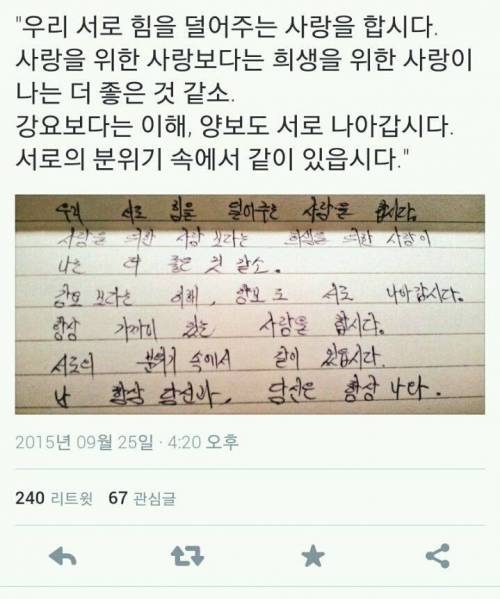 "우리 서로 힘을 덜어주는 사랑을 합시다.
사랑을 위한 사랑보다는 희생을 위한 사랑이
나는 더 좋은 것 같소.
강요보다는 이해, 양보도 서로 나아갑시다.
서로의 분위기 속에서 같이 있읍시다."
우리 서로 힘을 덜어주는 사랑을 합시다.
사랑을 위한 사랑 보다는 희생을 위한 사랑이
나는 더 좋은 것 같소.
강요 보다는 이해, 양보도 서로 나아갑시다.
항상 가까이 있는 사랑을 합시다.
서로의 분위기 속에서 같이 있읍시다.
난 항상 당신과, 당신은 항상 나다.
2015년 09월 25일 · 4:20 오후
240 리트윗 67 관심글